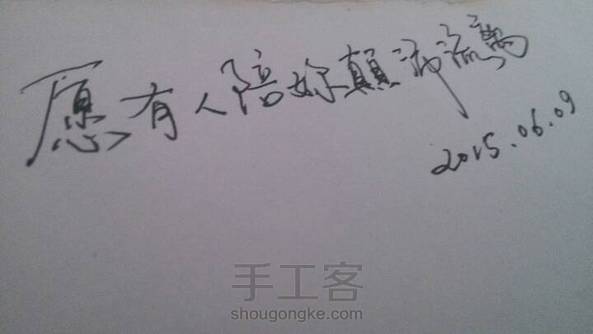 愿有人陪你顛沛流離
2015.06.09
手工客
shougongke.com